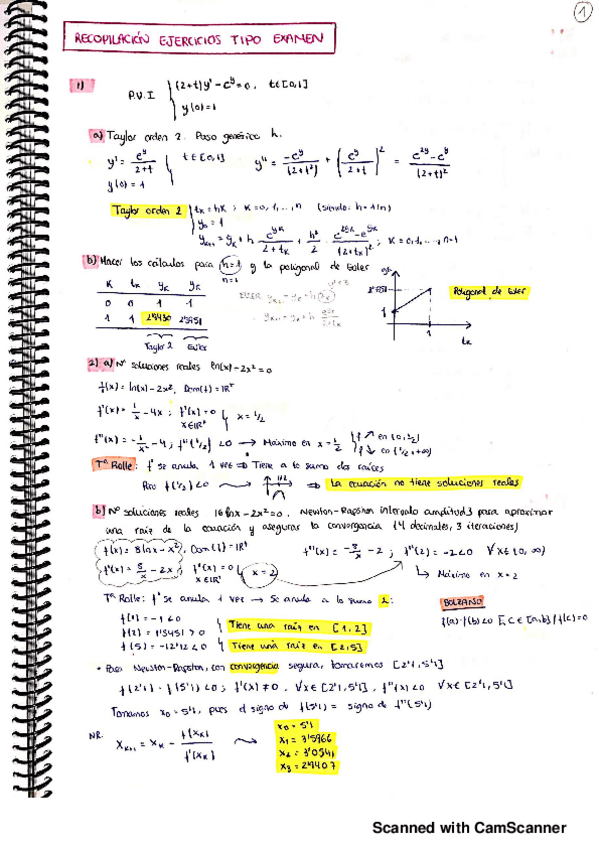 1
RECOPILACIÓN EJERCICIOS TIPO EXAMEN
1) P.V.I { (2+t)y' - e^y = 0, t∈[0,1]
y(0)=1
a) Taylor orden 2. Paso genérico h.
y' = e^y/(2+t) } t∈[0,1] y'' = -e^y/(2+t)² + (e^y/(2+t))² = (e^{2y} - e^y)/(2+t)²
y(0)=1
Taylor orden 2 { t_k = hk ; k=0,1,...,n (siendo h=1/n)
y_0 = 1
y_{k+1} = y_k + h e^{y_k}/(2+t_k) + h²/2 · (e^{2y_k} - e^{y_k})/(2+t_k)² ; k=0,1,...,n-1
b) Hacer los cálculos para h=1 y la poligonal de Euler
n=1
k t_k y_k y_k
0 0 1 1
1 1
Taylor 2 Euler
EULER
Poligonal de Euler
y_k
1
1
t_k
2) a) Nº soluciones reales ln(x) - 2x² = 0
f(x) = ln(x) - 2x², Dom(f) = IR⁺
f'(x) = 1/x - 4x ; f'(x) = 0 } x = 1/2
x∈IR⁺
f''(x) = -1/x² - 4 ; f''(1/2) < 0 → Máximo en x = 1/2 { f ↗ en (0,1/2)
f ↘ en (1/2,+∞)
Tª Rolle: f' se anula 1 vez ⇒ Tiene a lo sumo dos raíces
Pero f(1/2) < 0 ⇒ La ecuación no tiene soluciones reales
b) Nº soluciones reales 16 lnx - 2x² = 0. Newton-Raphson intervalo amplitud 3 para aproximar
una raíz de la ecuación y asegurar la convergencia (4 decimales, 3 iteraciones)
f(x) = 8 lnx - x², Dom(f) = IR⁺
f'(x) = 8/x - 2x ; f'(x) = 0 } x = 2
x∈IR⁺
f''(2) < 0 ∀x∈(0,∞)
↳ Máximo en x = 2
Tª Rolle: f' se anula 1 vez → Se anula a lo sumo 2:
BOLZANO
f(a)·f(b)<0 ∃ c∈[a,b] / f(c)=0
f(1) = -1 < 0
f(2) = 1'5451 > 0 } Tiene una raíz en [1,2]
f(5) = -12'12 < 0 } Tiene una raíz en [2,5]
• Para Newton-Raphson, con convergencia segura, tomaremos [2'1, 5'1]
f(2'1)·f(5'1) < 0 ; f'(x) ≠ 0, ∀x∈[2'1, 5'1], f''(x) < 0 ∀x∈[2'1, 5'1]
Tomamos x_0 = 5'1, pues el signo de f(5'1) = signo de f''(5'1)
NR. x_{k+1} = x_k - f(x_k)/f'(x_k)
x_0 = 5'1
x_1 = 3'5966
x_2 = 3'0341
x_3 = 2'9407
Scanned with CamScanner